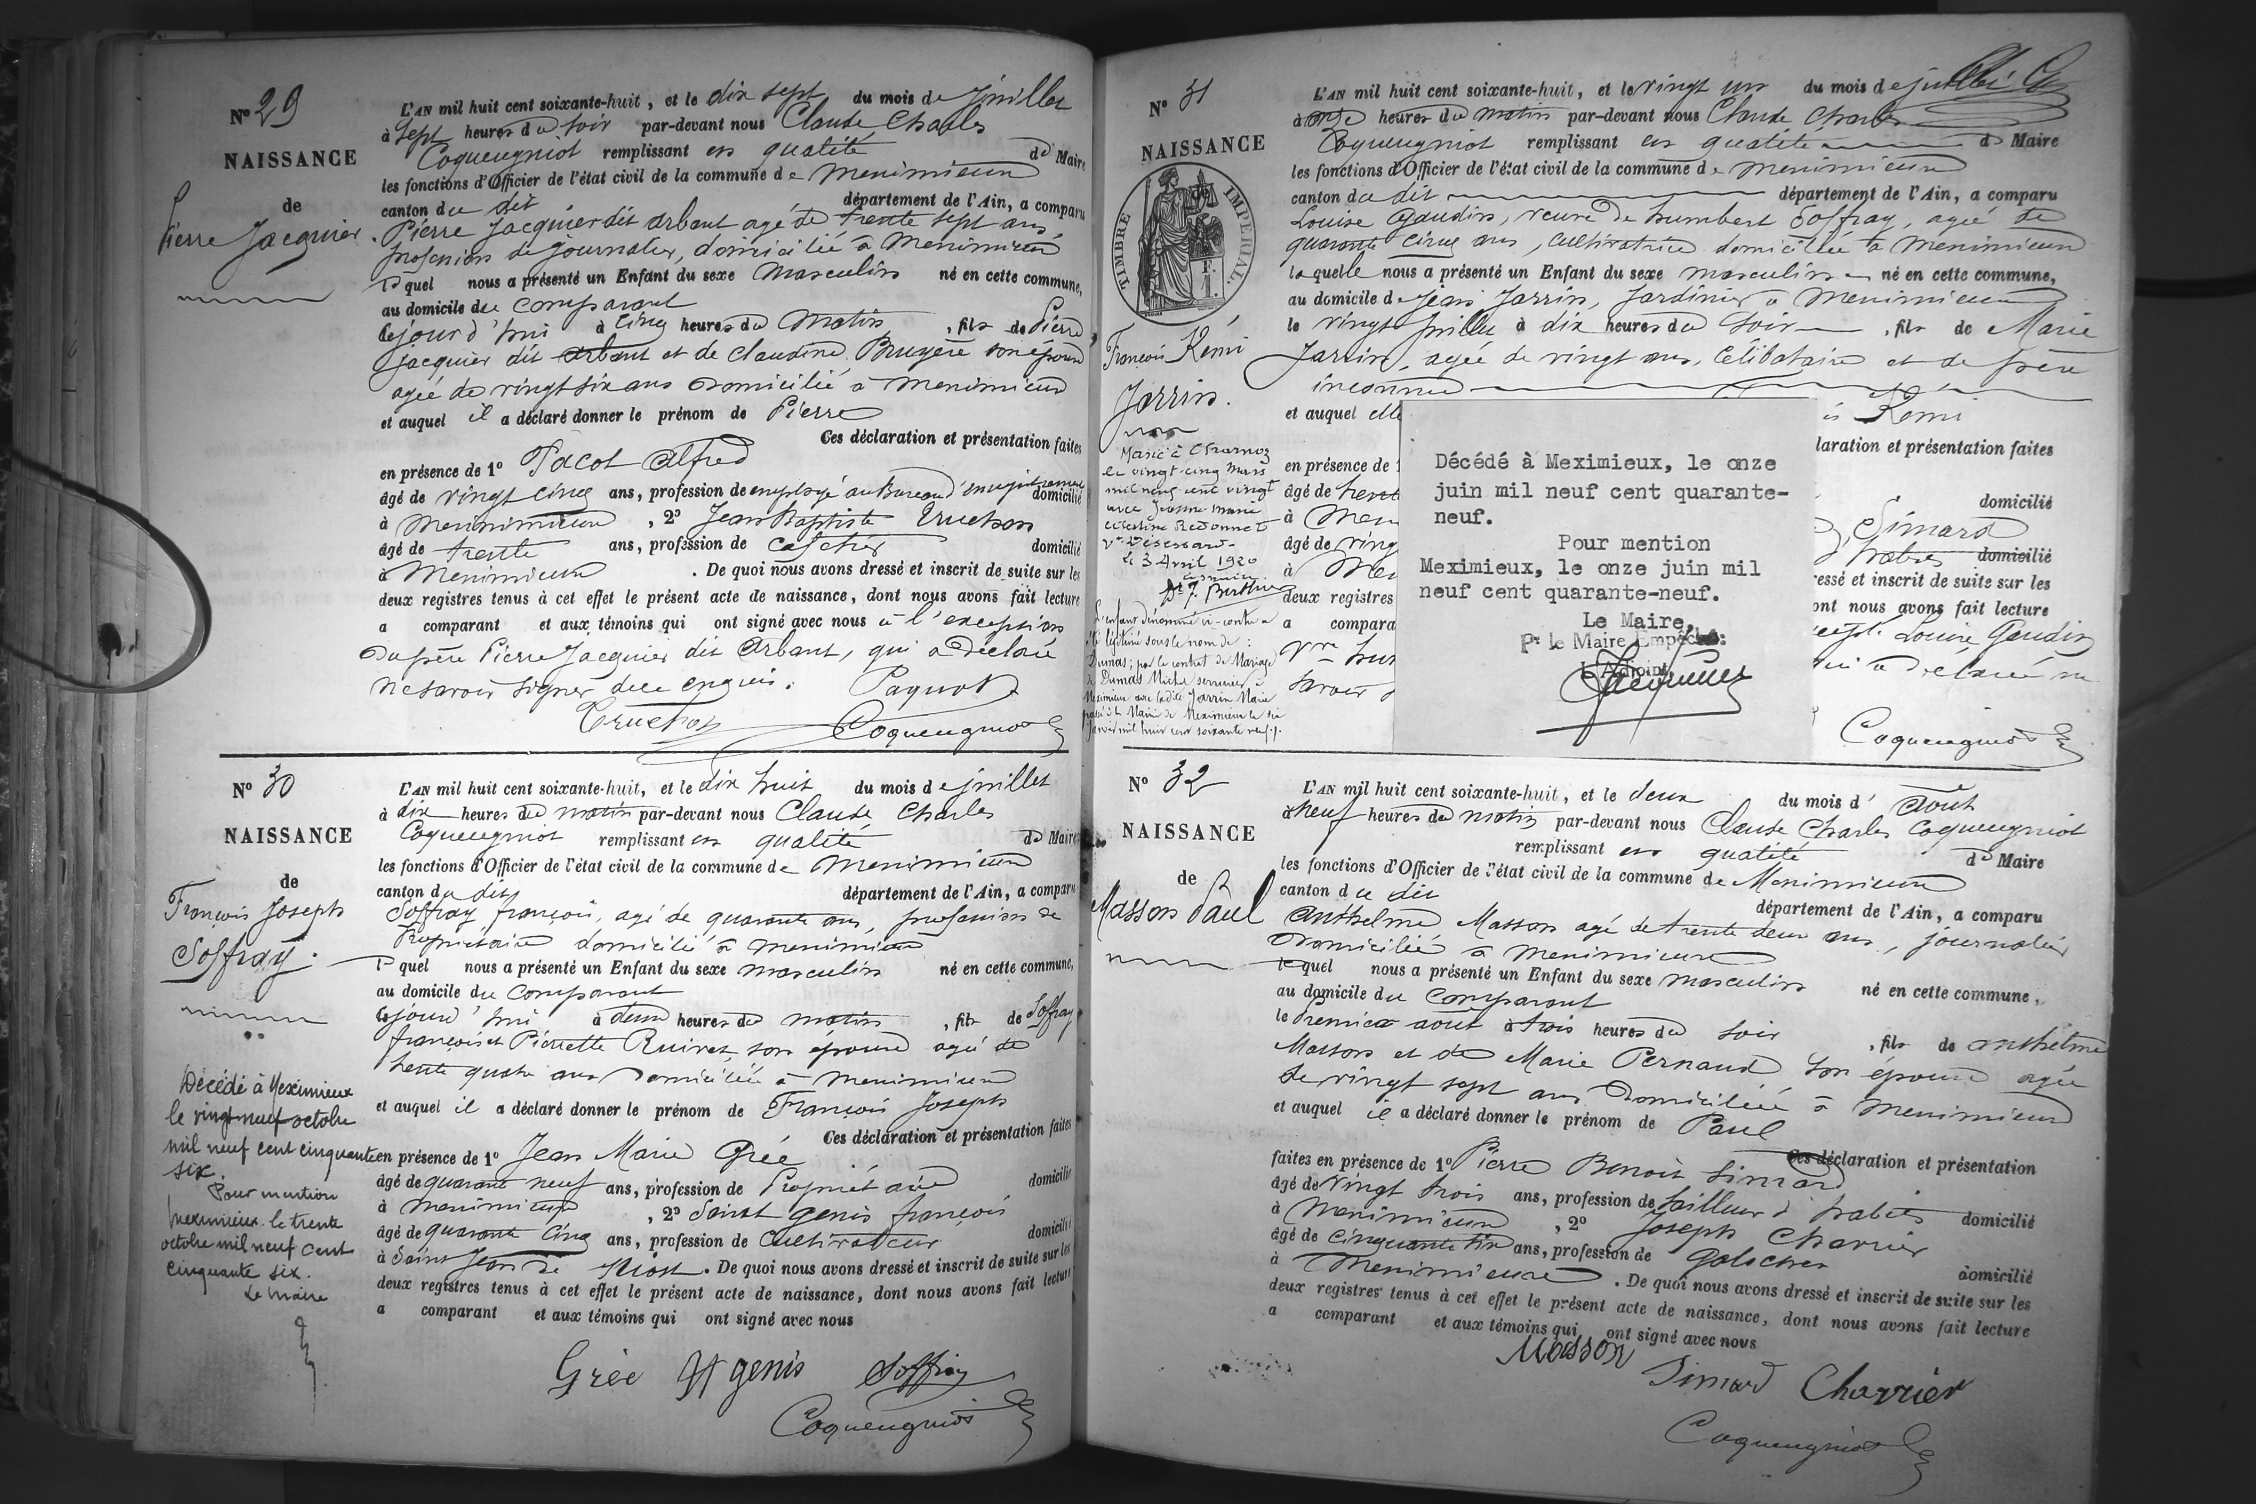 N° 29
NAISSANCE
de
Pierre Jacquier.
L'AN mil huit cent soixante-huit, et le dix sept du mois de Juillet
à Sept heures du soir par-devant nous Claude Charles
Coqueugniot remplissant en qualité de Maire
les fonctions d'Officier de l'état civil de la commune de Meximieux
canton du dit département de l'Ain, a comparu
Pierre Jacquier dit Arbant agé de trente sept ans,
profession de journalier, domicilié à Meximieux
Lequel nous a présenté un Enfant du sexe Masculin né en cette commune,
au domicile du comparant
le jour d'hui à cinq heures du Matin, fils de Pierre
Jacquier dit Arbant et de Claudine Bruyère son épouse
agée de vingt six ans domiciliée à Meximieux
et auquel il a déclaré donner le prénom de Pierre
Ces déclaration et présentation faites
en présence de 1° Pacot Alfred
âgé de vingt cinq ans, profession de employé au Bureau d'enregistrement domicilié
à Meximieux, 2° Jean Baptiste Truchon
âgé de trente ans, profession de domicilié
à Meximieux. De quoi nous avons dressé et inscrit de suite sur les
deux registres tenus à cet effet le présent acte de naissance, dont nous avons fait lecture
a comparant et aux témoins qui ont signé avec nous à l'exception
du père Pierre Jacquier dit Arbant, qui a déclaré
ne savoir signer de ce enquis.
Truchon Coqueugniot
N° 30
NAISSANCE
de
François Joseph
Soffray.
Décédé à Meximieux
le vingt-neuf octobre
mil neuf cent cinquante
six.
Pour mention
Meximieux le trente
octobre mil neuf cent
cinquante six.
Le Maire
L'AN mil huit cent soixante-huit, et le dix huit du mois de juillet
à dix heures du matin par-devant nous Claude Charles
Coqueugniot remplissant en qualité de Maire
les fonctions d'Officier de l'état civil de la commune de Meximieux
canton du dit département de l'Ain, a comparu
Soffray françois, agé de quarante ans, profession de
Propriétaire domicilié à Meximieux
Lequel nous a présenté un Enfant du sexe masculin né en cette commune,
au domicile du comparant
le jour d'hui à deux heures du matin, fils de Soffray
françois et Pierrette son épouse agée de
trente quatre ans domiciliée à Meximieux
et auquel il a déclaré donner le prénom de François Joseph
Ces déclaration et présentation faites
en présence de 1° Jean Marie Grée
âgé de quarante neuf ans, profession de Propriétaire domicilié
à Meximieux, 2° Saint genis françois
âgé de quarante cinq ans, profession de Cultivateur domicilié
à Saint Jean de Niost. De quoi nous avons dressé et inscrit de suite sur les
deux registres tenus à cet effet le présent acte de naissance, dont nous avons fait lecture
a comparant et aux témoins qui ont signé avec nous
Grée St genis Soffray
Coqueugniot
N° 31
NAISSANCE
de
TIMBRE IMPÉRIAL.
1 F.
François Rémi
Jarrin.
Marié à Charnoz
le vingt-cinq Mars
mil neuf cent vingt
avec Jeanne Marie
le 3 Avril 1920
L'enfant dénommé ci-contre a
été légitimé sous le nom de :
Dumas ; par le contrat de Mariage
de Dumas Michel
Meximieux avec la dite Jarrin Marie
passé à la Mairie de Meximieux le
Janvier mil huit cent soixante neuf.
L'AN mil huit cent soixante-huit, et le vingt un du mois de juillet
à onze heures du matin par-devant nous Claude Charles
Coqueugniot remplissant en qualité de Maire
les fonctions d'Officier de l'état civil de la commune de Meximieux
canton du dit département de l'Ain, a comparu
Louise Gaudin, veuve de humbert Soffray, agée de
quarante cinq ans, cultivatrice domiciliée à Meximieux
laquelle nous a présenté un Enfant du sexe masculin né en cette commune,
au domicile de Jean Jarrin, Jardinier à Meximieux
le vingt juillet à dix heures du soir, fils de Marie
Jarrin, agée de vingt ans, Célibataire et de père
inconnu
et auquel elle Rémi
laration et présentation faites
en présence de 1
âgé de trent domicilié
à Mex Simard
âgé de ving domicilié
à Mex ressé et inscrit de suite sur les
deux registres ont nous avons fait lecture
a compara Louise Gaudin
Vve hum qui a déclaré ne
savoir s
Coqueugniot
Décédé à Meximieux, le onze
juin mil neuf cent quarante-
neuf.
Pour mention
Meximieux, le onze juin mil
neuf cent quarante-neuf.
Le Maire,
Pr le Maire Empêché:
L'Adjoint
N° 32
NAISSANCE
de
Masson Paul
L'AN mil huit cent soixante-huit, et le deux du mois d'Août
à neuf heures du matin par-devant nous Claude Charles Coqueugniot
remplissant en qualité de Maire
les fonctions d'Officier de l'état civil de la commune de Meximieux
canton du dit département de l'Ain, a comparu
Anthelme Masson agé de trente deux ans, journalier
domicilié à Meximieux
lequel nous a présenté un Enfant du sexe masculin né en cette commune,
au domicile du comparant
le Premier août à trois heures du soir, fils de Anthelme
Masson et de Marie Pernaud son épouse agée
de vingt sept ans domiciliée à Meximieux
et auquel il a déclaré donner le prénom de Paul
Ces déclaration et présentation
faites en présence de 1° Pierre Benoit Simard
âgé de vingt trois ans, profession de tailleur d'habits domicilié
à Meximieux, 2° Joseph Charrier
âgé de cinquante six ans, profession de Galocher domicilié
à Meximieux. De quoi nous avons dressé et inscrit de suite sur les
deux registres tenus à cet effet le présent acte de naissance, dont nous avons fait lecture
a comparant et aux témoins qui ont signé avec nous
Masson
Simard Charrier
Coqueugniot